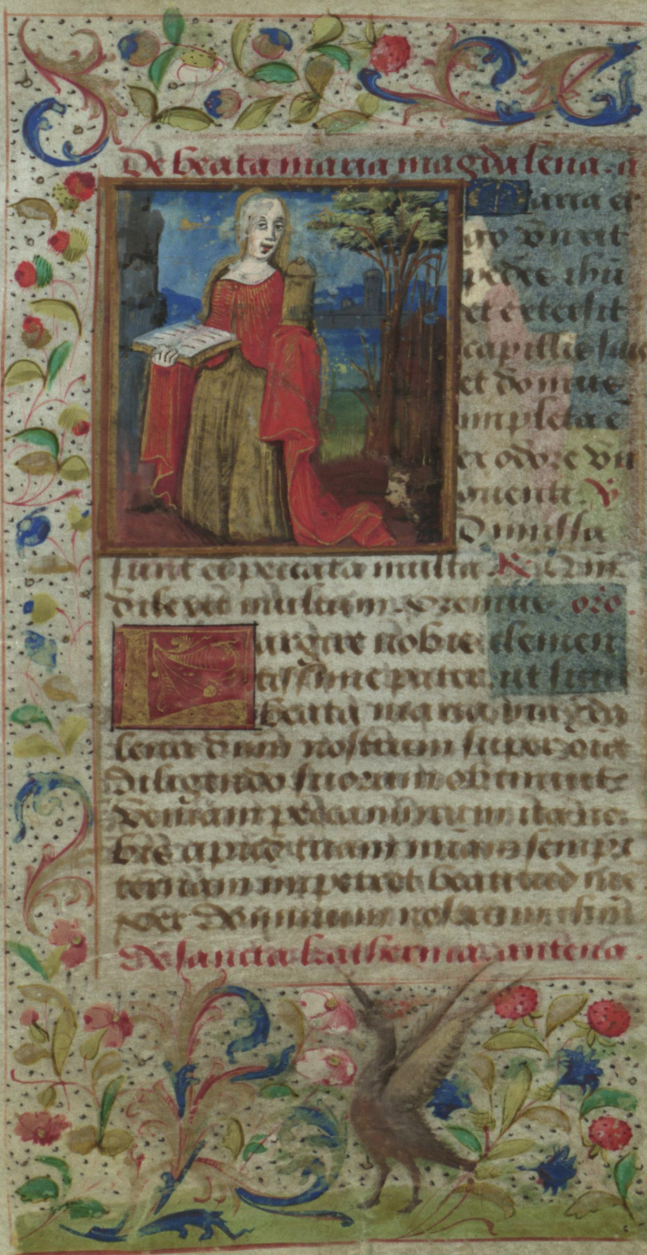 De beata maria magdalena. a
Maria er
go unxit
pedes ihu
et extersit
capillis suis
et domus
impleta e
ex odore un
guenti. V
Dimissa
sunt ei peccata multa R Qm
dilexit multum Oremus oro.
Largire nobis clemen
tissime pater ut sicut
beata maria magda
lena dnm nostrum super omia
diligendo suorum obtinuit
veniam peccaminum ita no
bis apud tuam miam sempi
ternam impetret beatitudine
per dominum nostrum ihm
De sancta katherina antena.